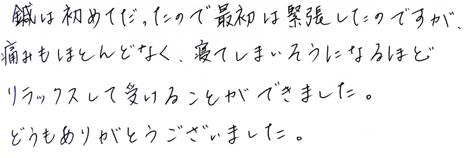 鍼は初めてだったので最初は緊張したのですが、
痛みもほとんどなく、寝てしまいそうになるほど
リラックスして受けることができました。
どうもありがとうございました。